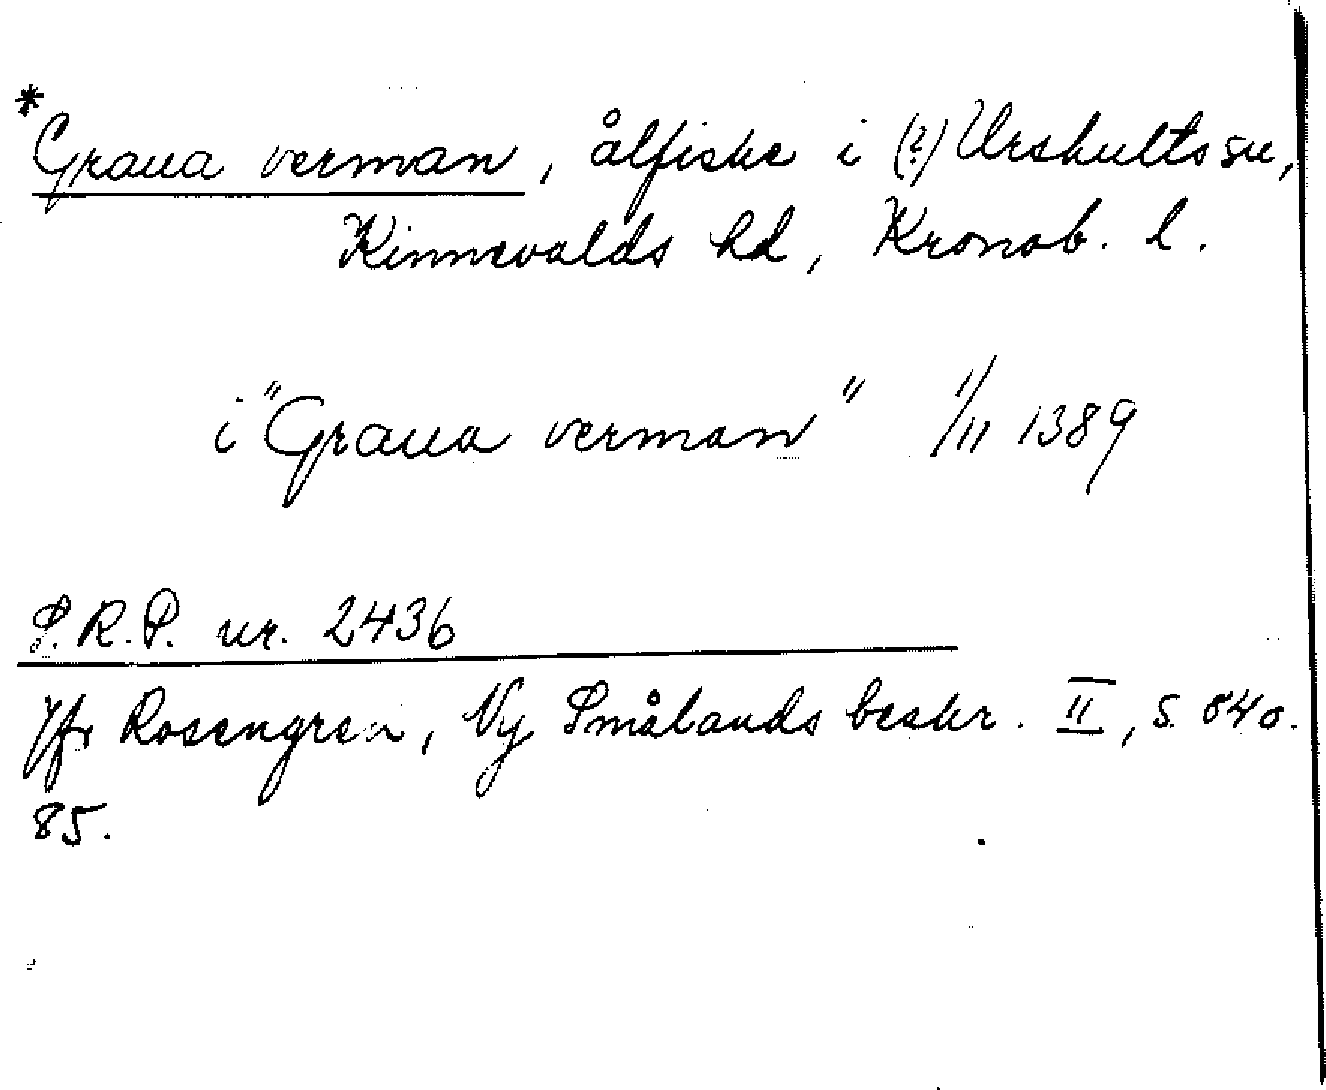 *Graua verman, ålfiske i (?) Urshults sn,
Kinnevalds hd, Kronob. l.
i "Graua verman" 1/11 1389
S.R.P. nr. 2436
Jfr Rosengren, Ny Smålands beskr. II, s. 84 o.
85.